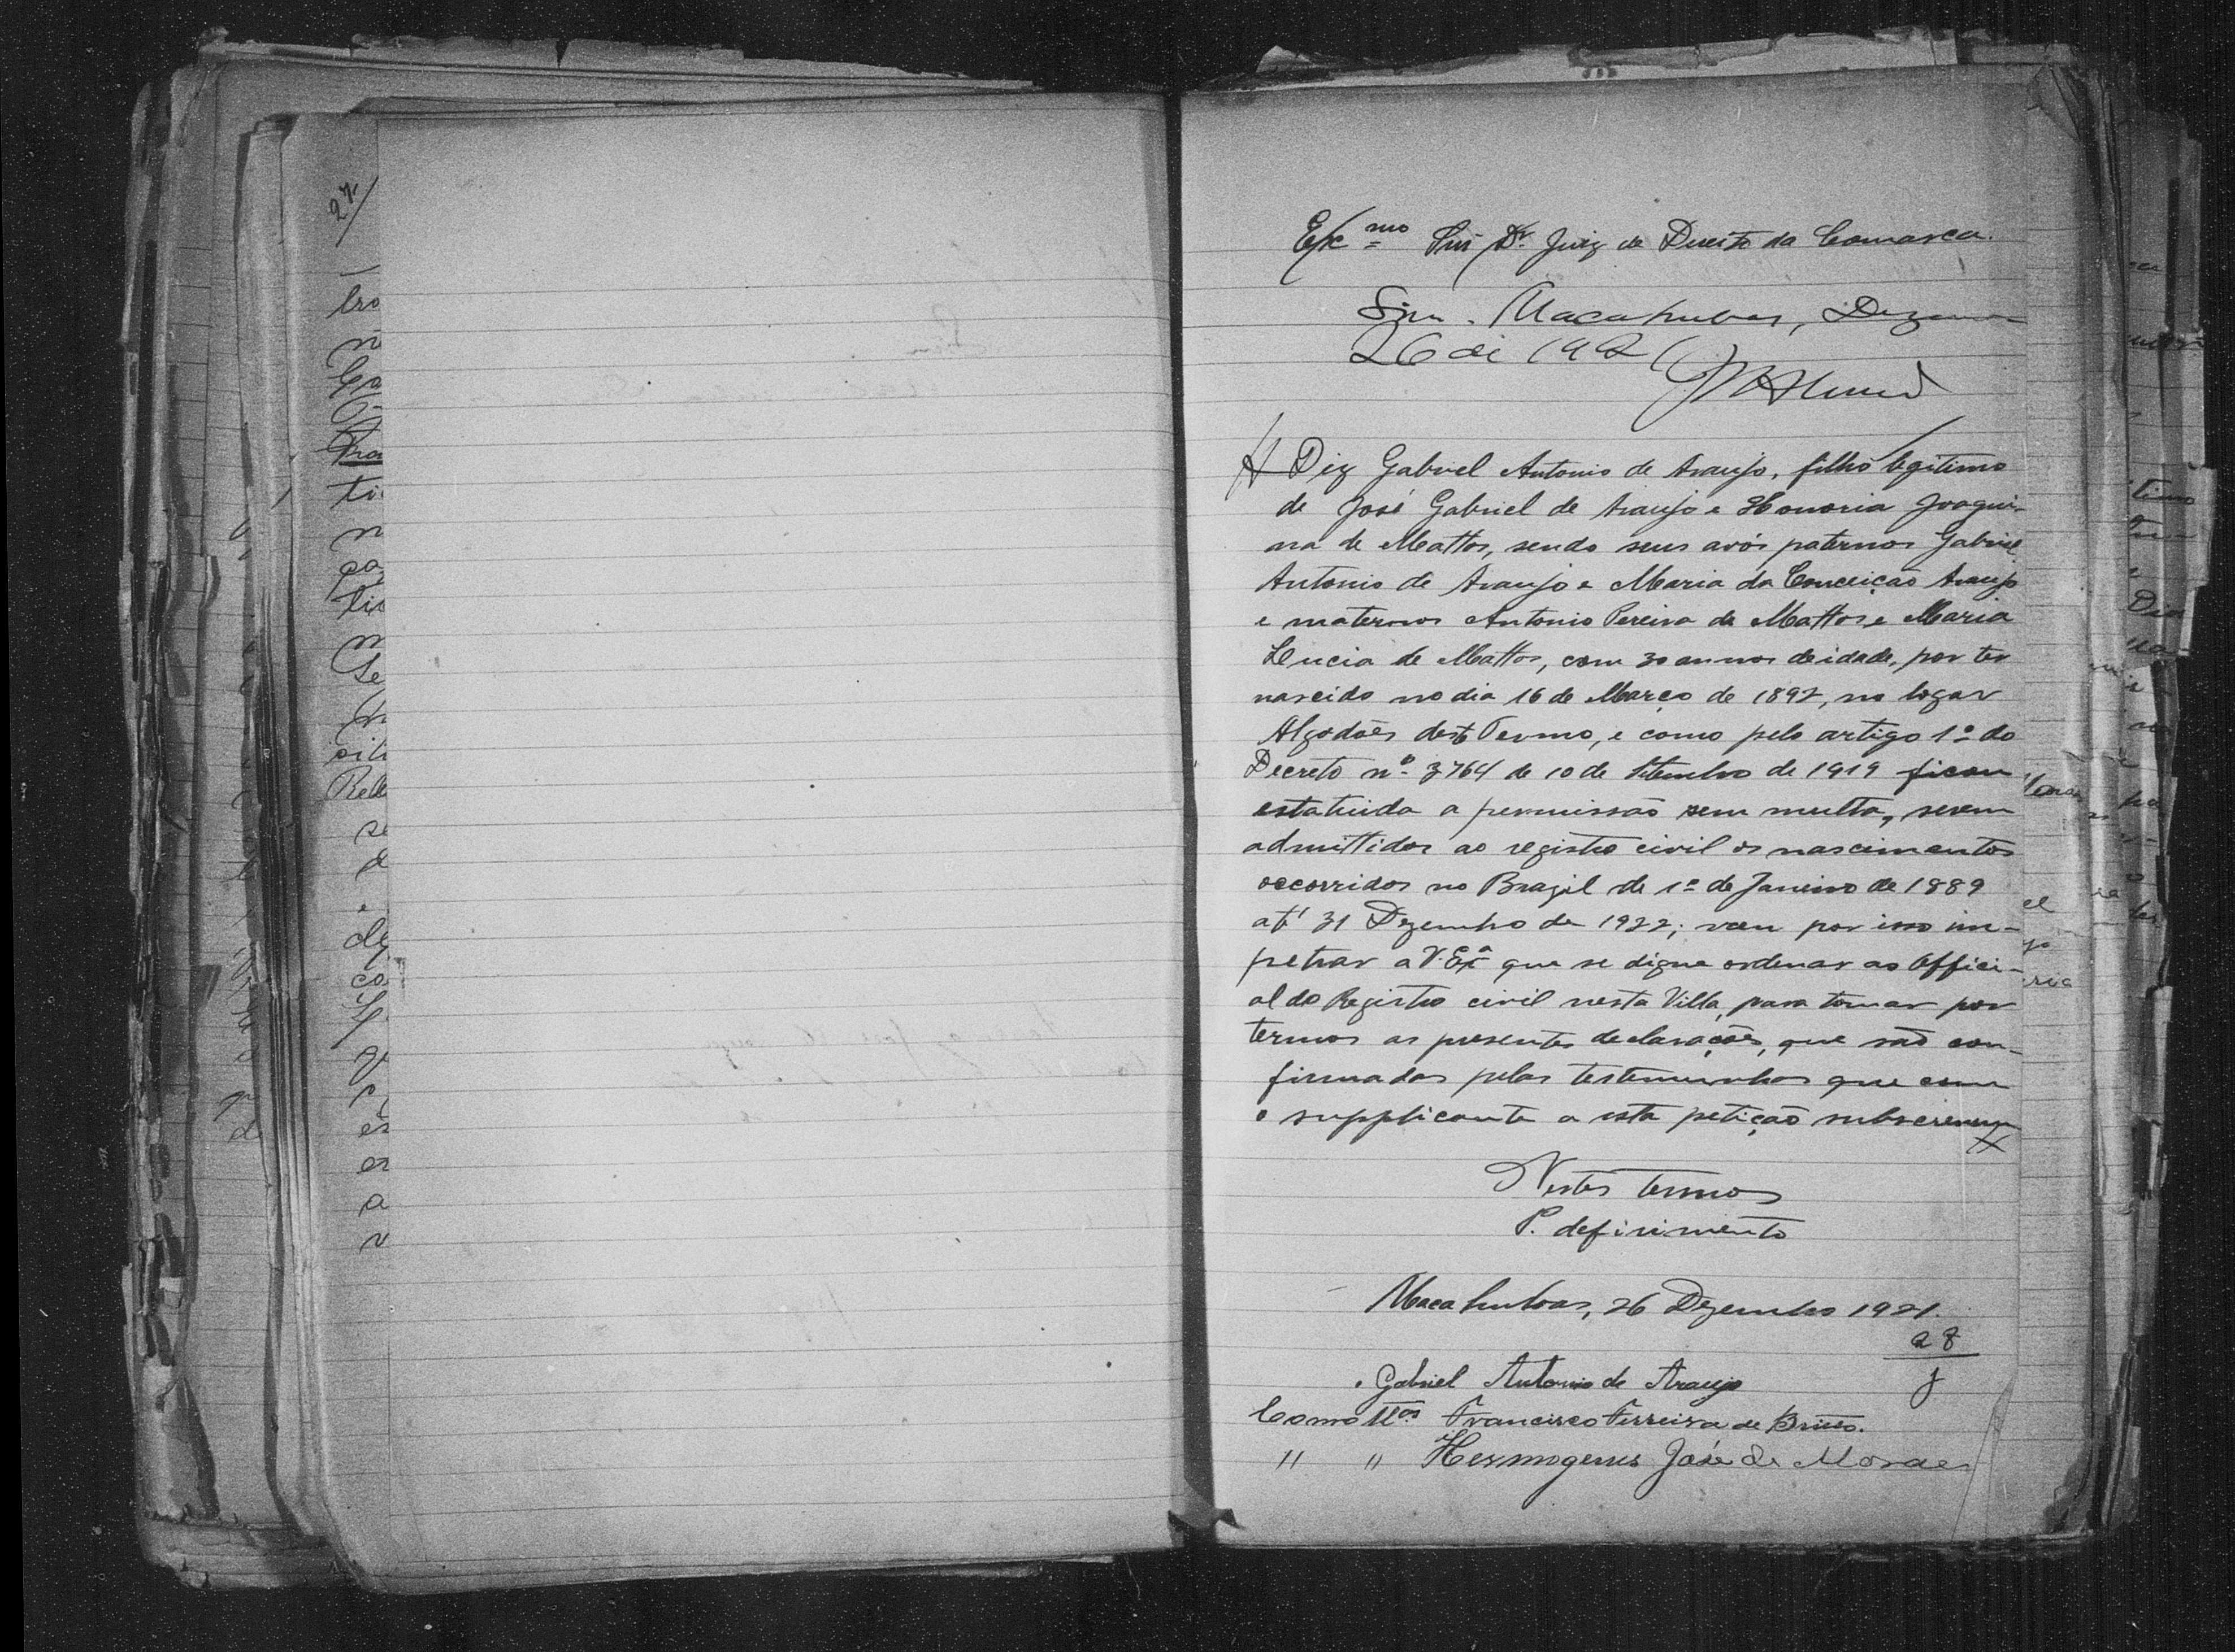 27
Exc.mo Snr Dr. Juiz de Direito da Comarca.
Sim. Macahubas, Dezem
26 de 1921
Diz Gabriel Antonio de Araujo, filho legitimo
de José Gabriel de Araujo e Honoria Joaqui-
na de Mattos, sendo seus avós paternos Gabriel
Antonio de Araujo e Maria da Conceição Araujo
e maternos Antonio Pereira de Mattos e Maria
Lucia de Mattos, com 30 annos de idade, por ter
nascido no dia 16 de Março de 1892, no logar
Algodões deste Termo, e como pelo artigo 1º do
Decreto nº 3764 de 10 de Setembro de 1919 ficou
estatuida a permissão sem multa, serem
admittidos ao registro civil os nascimentos
occorridos no Brazil de 1º de Janeiro de 1889
até 31 Dezembro de 1922; vem por isso im-
petrar a V. Exª que se digne ordenar ao Offici-
al do Registro civil nesta Villa, para tomar por
termos as presentes declarações, que são con-
firmadas pelas testemunhas que com
o supplicante a esta petição subscrevem
Nestes termos
P. defirimento
Macahubas, 26 Dezembro 1921.
28
Gabriel Antonio de Araujo
Como ttas Francisco Ferreira de Britto.
" " Hermogenes José de Moraes